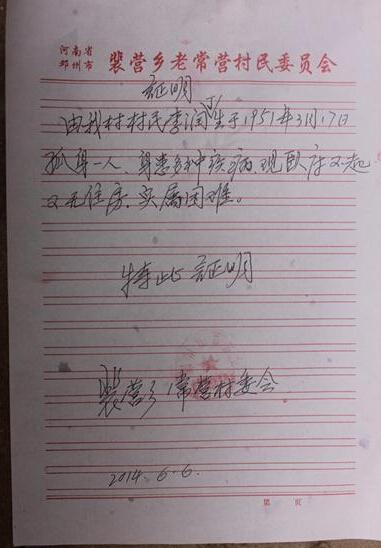 河南省
邓州市
裴营乡老常营村民委员会
証明
由我村村民李润生于1951年3月17日
孤身一人、身患多种疾病、现卧床不起
又无住房、实属困难。
特此証明
裴营乡常营村委会
2014.6.6.
第 页